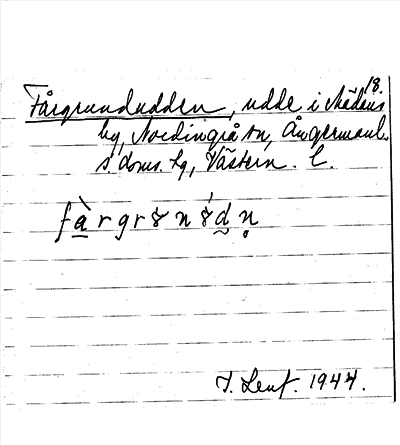 18.
Fårgrundudden, udde i Mädans
by, Nordingrå sn, Ångermanl.
s. doms. hg, Västern. l.
fàrgrɤnɤ́dn̥
I. Lenf. 1944.